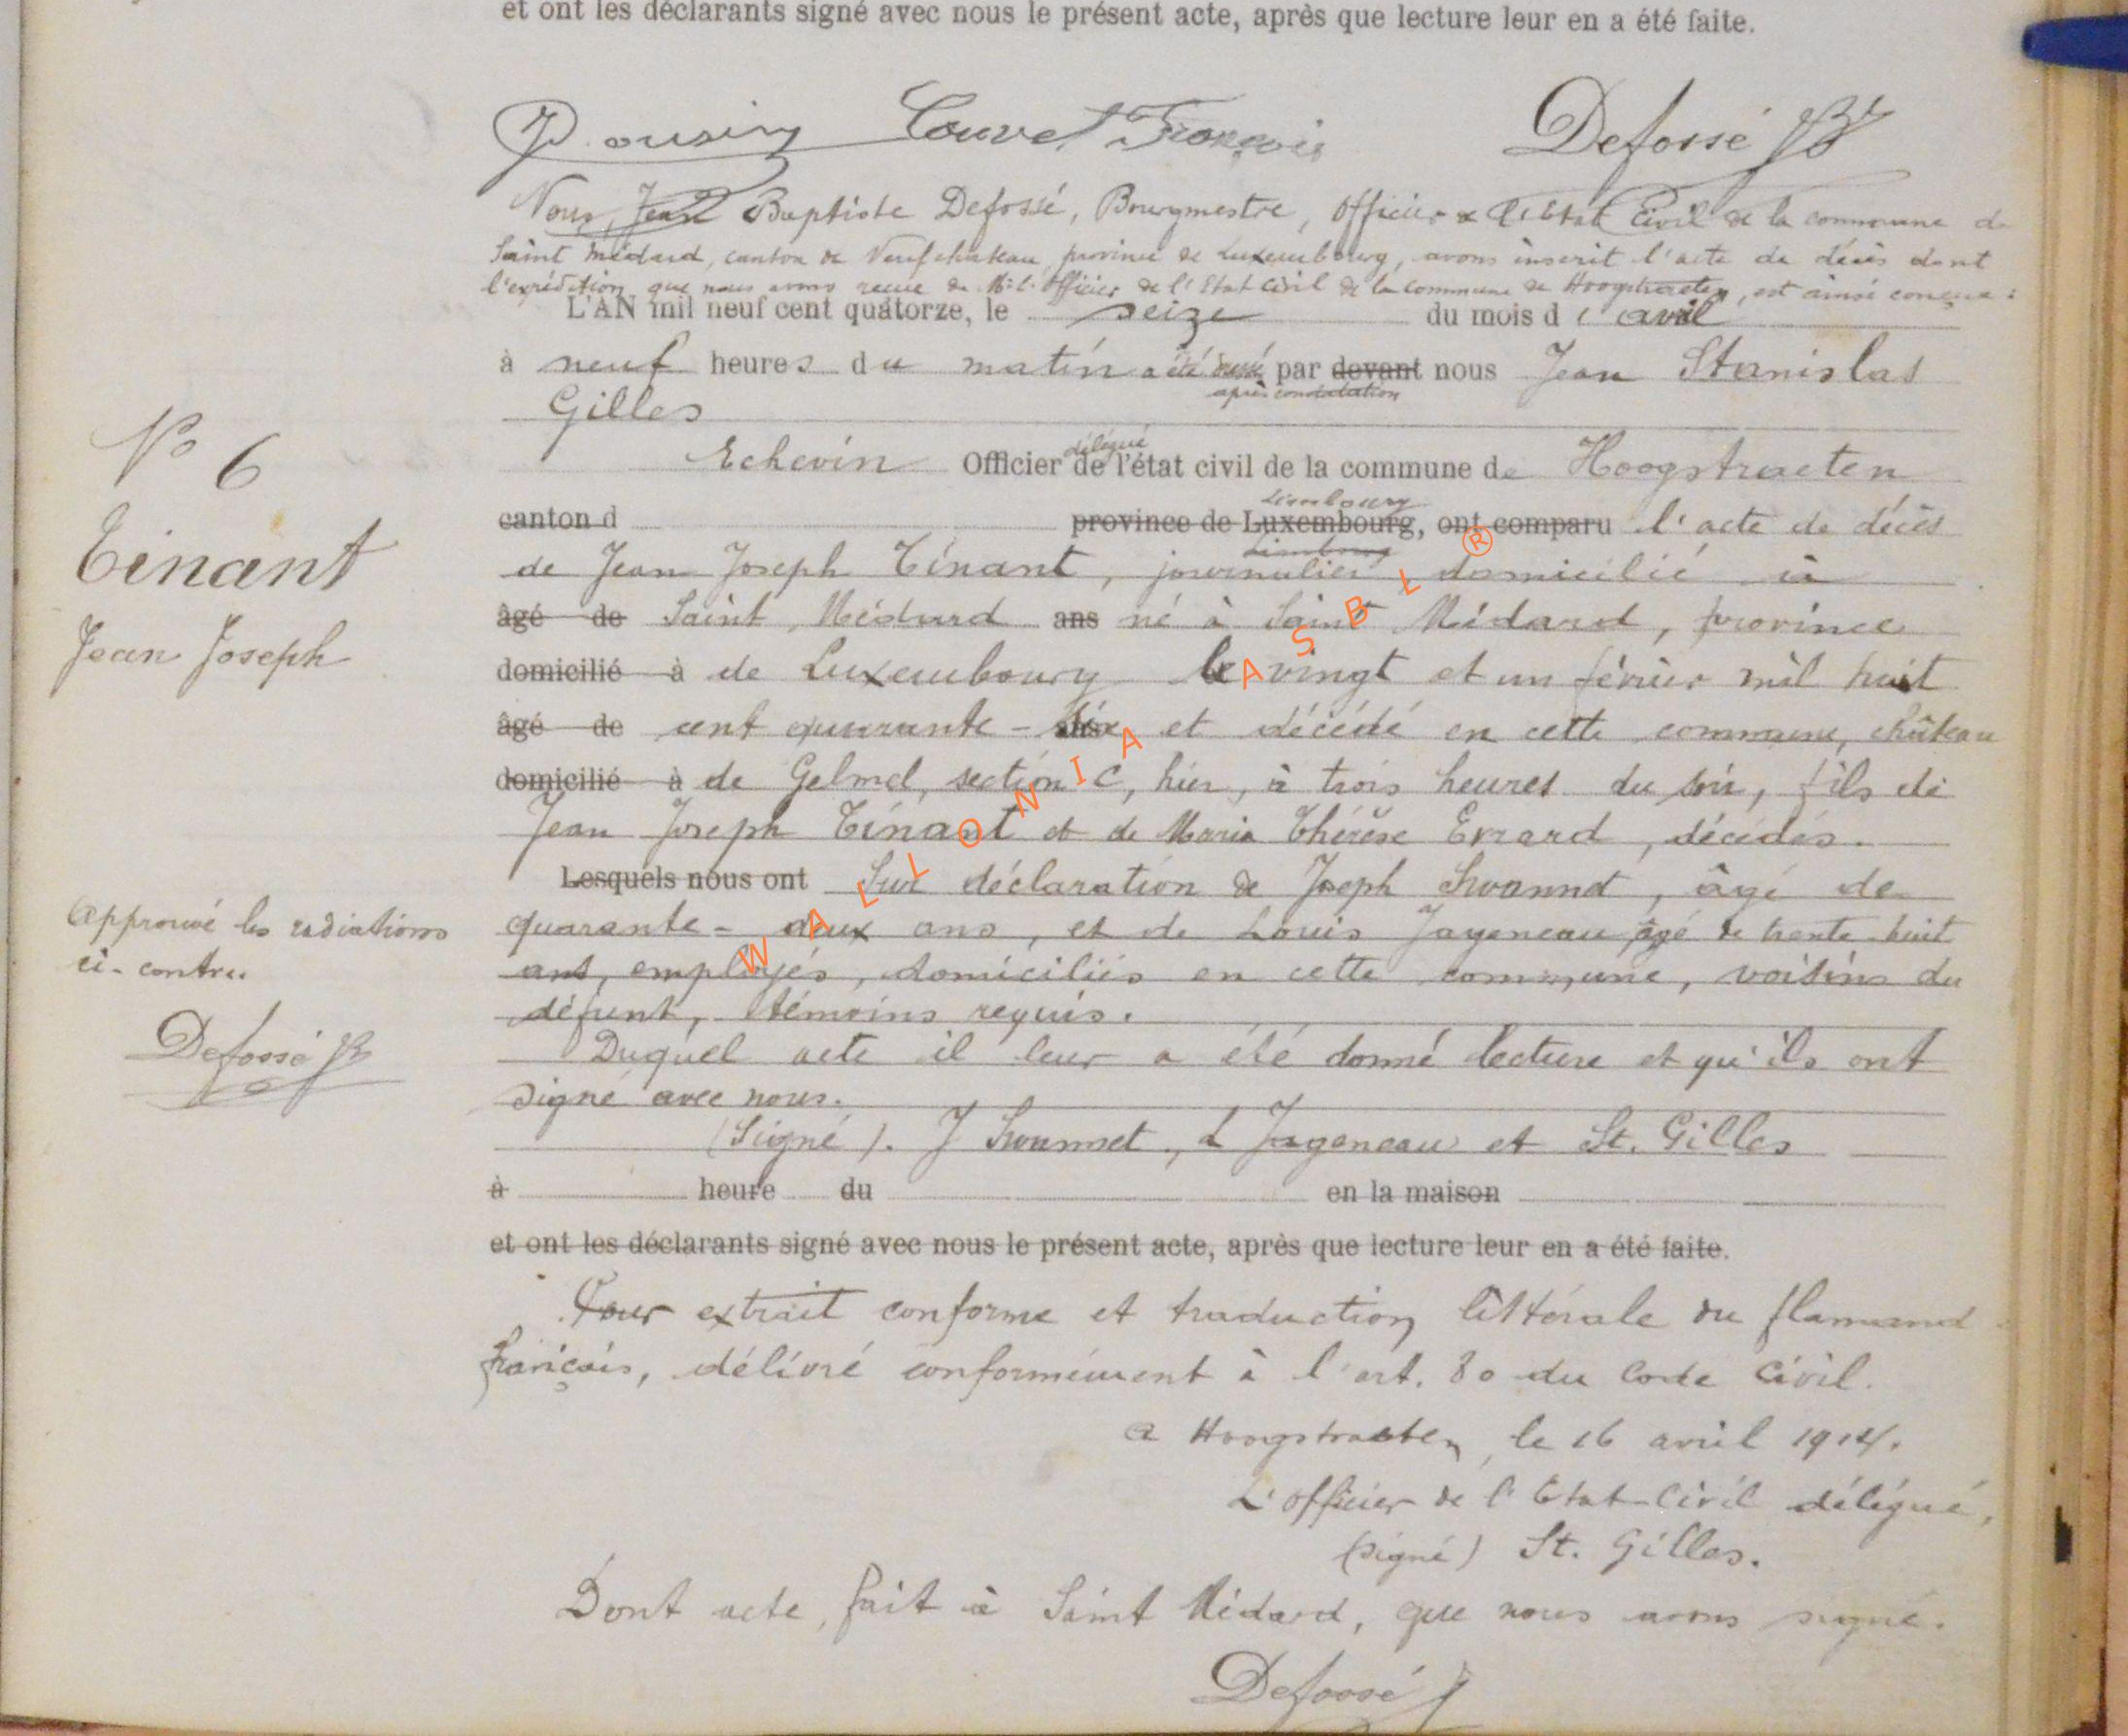 et ont les déclarants signé avec nous le présent acte, après que lecture leur en a été faite.
Couvet François Defossé JB
Nous, Jean Baptiste Defossé, Bourgmestre, Officier de l'Etat Civil de la commune de
Saint Médard, canton de Neufchateau, province de Luxembourg, avons inscrit l'acte de décès dont
l'expédition que nous avons reçue de Mr l'Officier de l'Etat civil de la commune de Hoogstraeten, est ainsi conçue :
L'AN mil neuf cent quatorze, le seize du mois d'avril
à neuf heures du matin a été par devant nous Jean Stanislas
après constatation
Gilles
délégué
Echevin Officier de l'état civil de la commune de Hoogstraeten
Limbourg
canton d province de Luxembourg, ont comparu l'acte de décès
Limbourg
de Jean Joseph Tinant, journalier, domicilié à
âgé de Saint Médard ans né à Saint Médard, province
domicilié à de Luxembourg le vingt et un février mil huit
âgé de cent quarante - et décédé en cette commune, château
domicilié à de Gelmel, section C, hier, à trois heures du soir, fils de
Jean Joseph Tinant et de Maria Thérèse Errard, décédés.
Lesquels nous ont Sur déclaration de Joseph Swannet, âgé de
quarante - deux ans, et de Louis Jageneau âgé de trente-huit
ans, employés, domiciliés en cette commune, voisins du
défunt, témoins requis.
Duquel acte il leur a été donné lecture et qu'ils ont
signé avec nous.
(Signé). J Swannet, L Jageneau et St. Gilles
à heure du en la maison
et ont les déclarants signé avec nous le présent acte, après que lecture leur en a été faite.
Pour extrait conforme et traduction littérale du flamand
français, délivré conformément à l'art. 80 du Code Civil.
A Hoogstraeten, le 16 avril 1914.
L'officier de l'Etat-Civil délégué,
(signé) St. Gilles.
Dont acte, fait à Saint Médard, que nous avons signé.
Defossé J
No 6
Tinant
Jean Joseph
Approuvé les radiations
ci-contre.
Defossé JB
WALLONIA ASBL ®